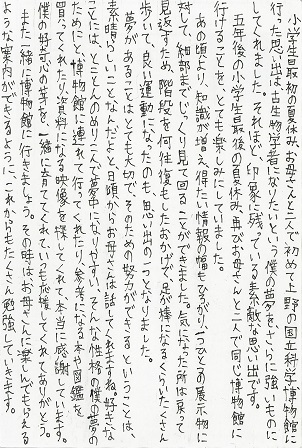 小学生最初の夏休み、お母さんと二人で初めて上野の国立科学博物館に
行った思い出は、古生物学者になりたいという僕の夢を、さらに強いものに
してくれました。それほど、印象に残っている素敵な思い出です。
五年後の小学生最後の夏休み、再びお母さんと二人で同じ博物館に
行けることを、とても楽しみにしていました。
あの頃より、知識が増え、得たい情報の幅もひろがり、一つひとつの展示物に
対して、細部までじっくり見て回ることができました。気になった所は戻って
見返すため、階段を何往復もしたおかげで、足が棒になるくらいたくさん
歩いて、良い運動になったのも思い出の一つとなりました。
夢があることはとても大切で、そのための努力ができるということは、
素晴らしいことなんだよと、日頃からお母さんは話してくれますね。好きな
ことには、とことんのめり二人で夢中になりやすい、そんな性格の僕の夢の
ためにと、博物館に連れて行ってくれたり、参考になる本や図鑑を
買ってくれたり、資料になる映像を探してくれて、本当に感謝しています。
僕の好奇心の芽を、一緒に育ててくれて、いつも応援してくれてありがとう。
また一緒に博物館に行きましょう。その時は、お母さんに楽しんでもらえる
ような案内ができるように、これからもたくさん勉強していきます。